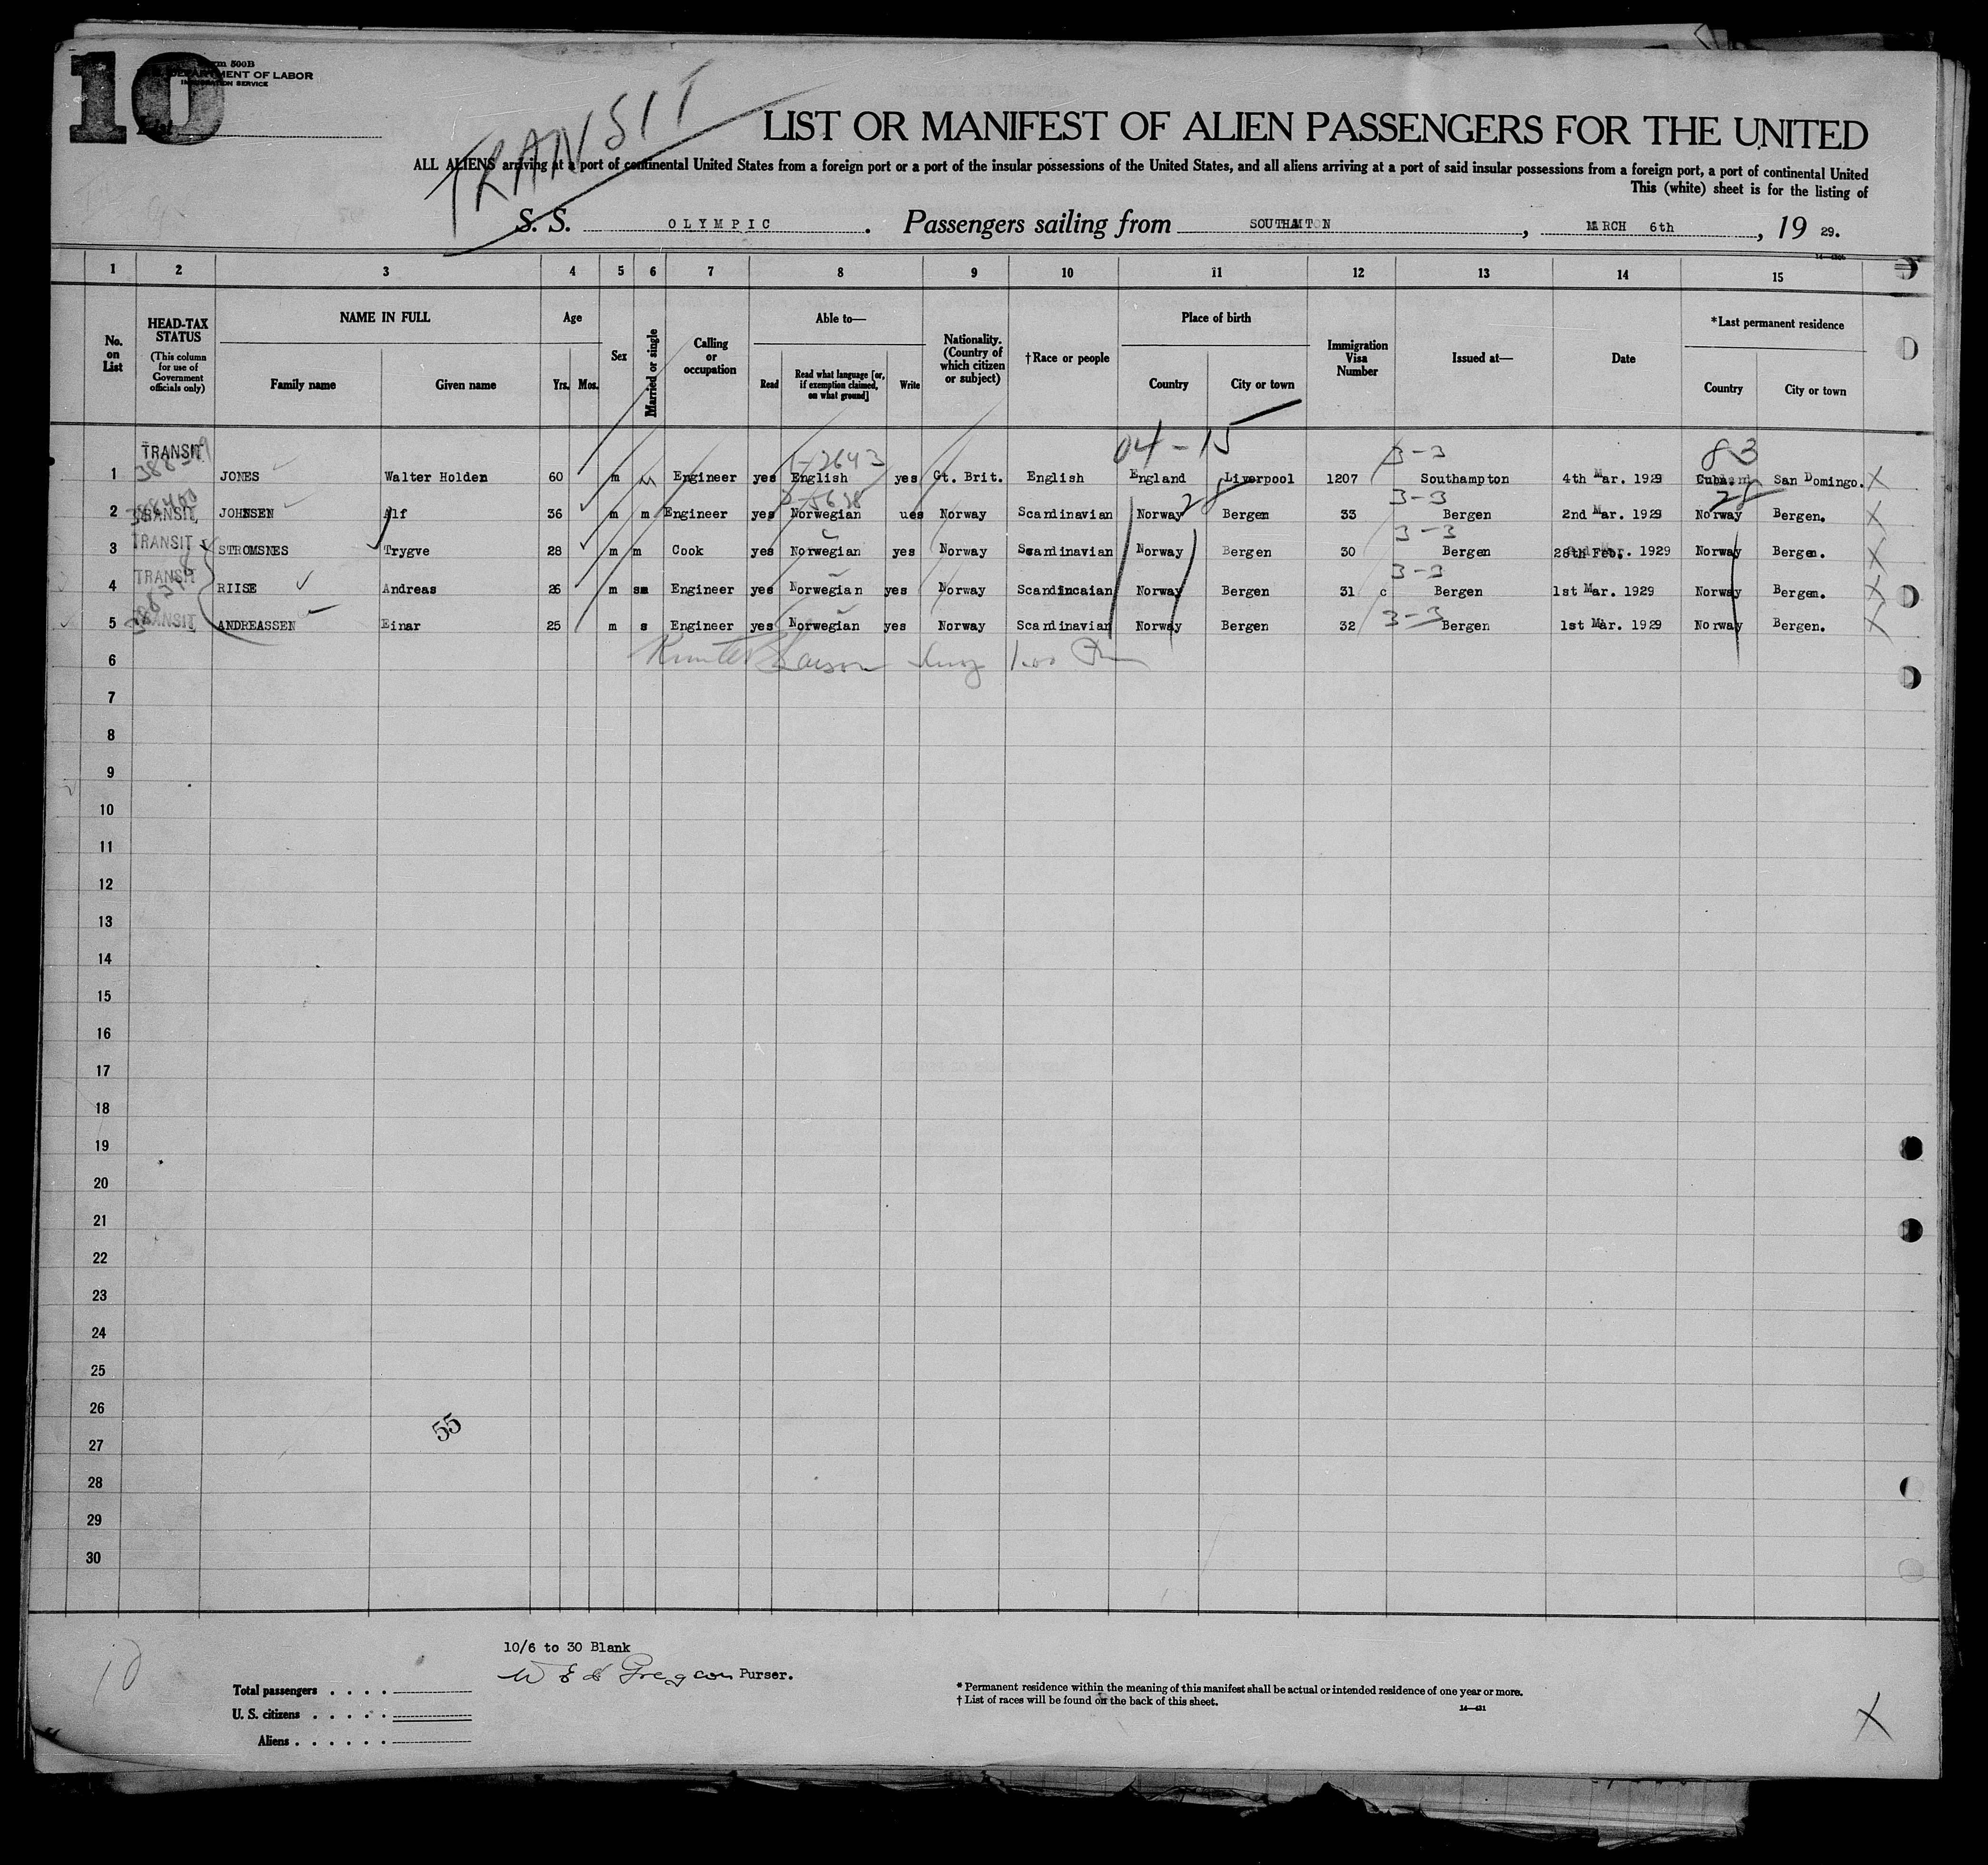 10
Form 500B
DEPARTMENT OF LABOR
IMMIGRATION SERVICE
TRANSIT
LIST OR MANIFEST OF ALIEN PASSENGERS FOR THE UNITED
ALL ALIENS arriving at a port of continental United States from a foreign port or a port of the insular possessions of the United States, and all aliens arriving at a port of said insular possessions from a foreign port, a port of continental United
This (white) sheet is for the listing of
S. S. OLYMPIC. Passengers sailing from SOUTHAMTON, MARCH 6th, 19 29.
1 2 3 4 5 6 7 8 9 10 11 12 13 14 15
No. on List
HEAD-TAX STATUS (This column for use of Government officials only)
NAME IN FULL Family name Given name
Age Yrs. Mos.
Sex
Married or single
Calling or occupation
Able to— Read Read what language [or, if exemption claimed, on what ground] Write
Nationality. (Country of which citizen or subject)
†Race or people
Place of birth Country City or town
Immigration Visa Number
Issued at—
Date
*Last permanent residence Country City or town
04-15 3-3 83
1 TRANSIT JONES Walter Holden 60 m M Engineer yes English yes Gt. Brit. English England Liverpool 1207 Southampton 4th Mar. 1929 Cuba. San Domingo. X
28 3-3 28
2 TRANSIT JOHNSEN Alf 36 m m Engineer yes Norwegian ues Norway Scandinavian Norway Bergen 33 Bergen 2nd Mar. 1929 Norway Bergen. X
3-3
3 TRANSIT STROMSNES Trygve 28 m m Cook yes Norwegian yes Norway Scandinavian Norway Bergen 30 Bergen 28th Feb. 1929 Norway Bergen. X
3-3
4 TRANSIT RIISE Andreas 26 m s Engineer yes Norwegian yes Norway Scandincaian Norway Bergen 31 c Bergen 1st Mar. 1929 Norway Bergen. X
3-3
5 TRANSIT ANDREASSEN Einar 25 m s Engineer yes Norwegian yes Norway Scandinavian Norway Bergen 32 Bergen 1st Mar. 1929 Norway Bergen. X
6
7
8
9
10
11
12
13
14
15
16
17
18
19
20
21
22
23
24
25
26
55
27
28
29
30
10/6 to 30 Blank
Purser.
10
Total passengers . . . .
U. S. citizens . . . . .
Aliens . . . . . .
* Permanent residence within the meaning of this manifest shall be actual or intended residence of one year or more.
† List of races will be found on the back of this sheet.
14—421
X